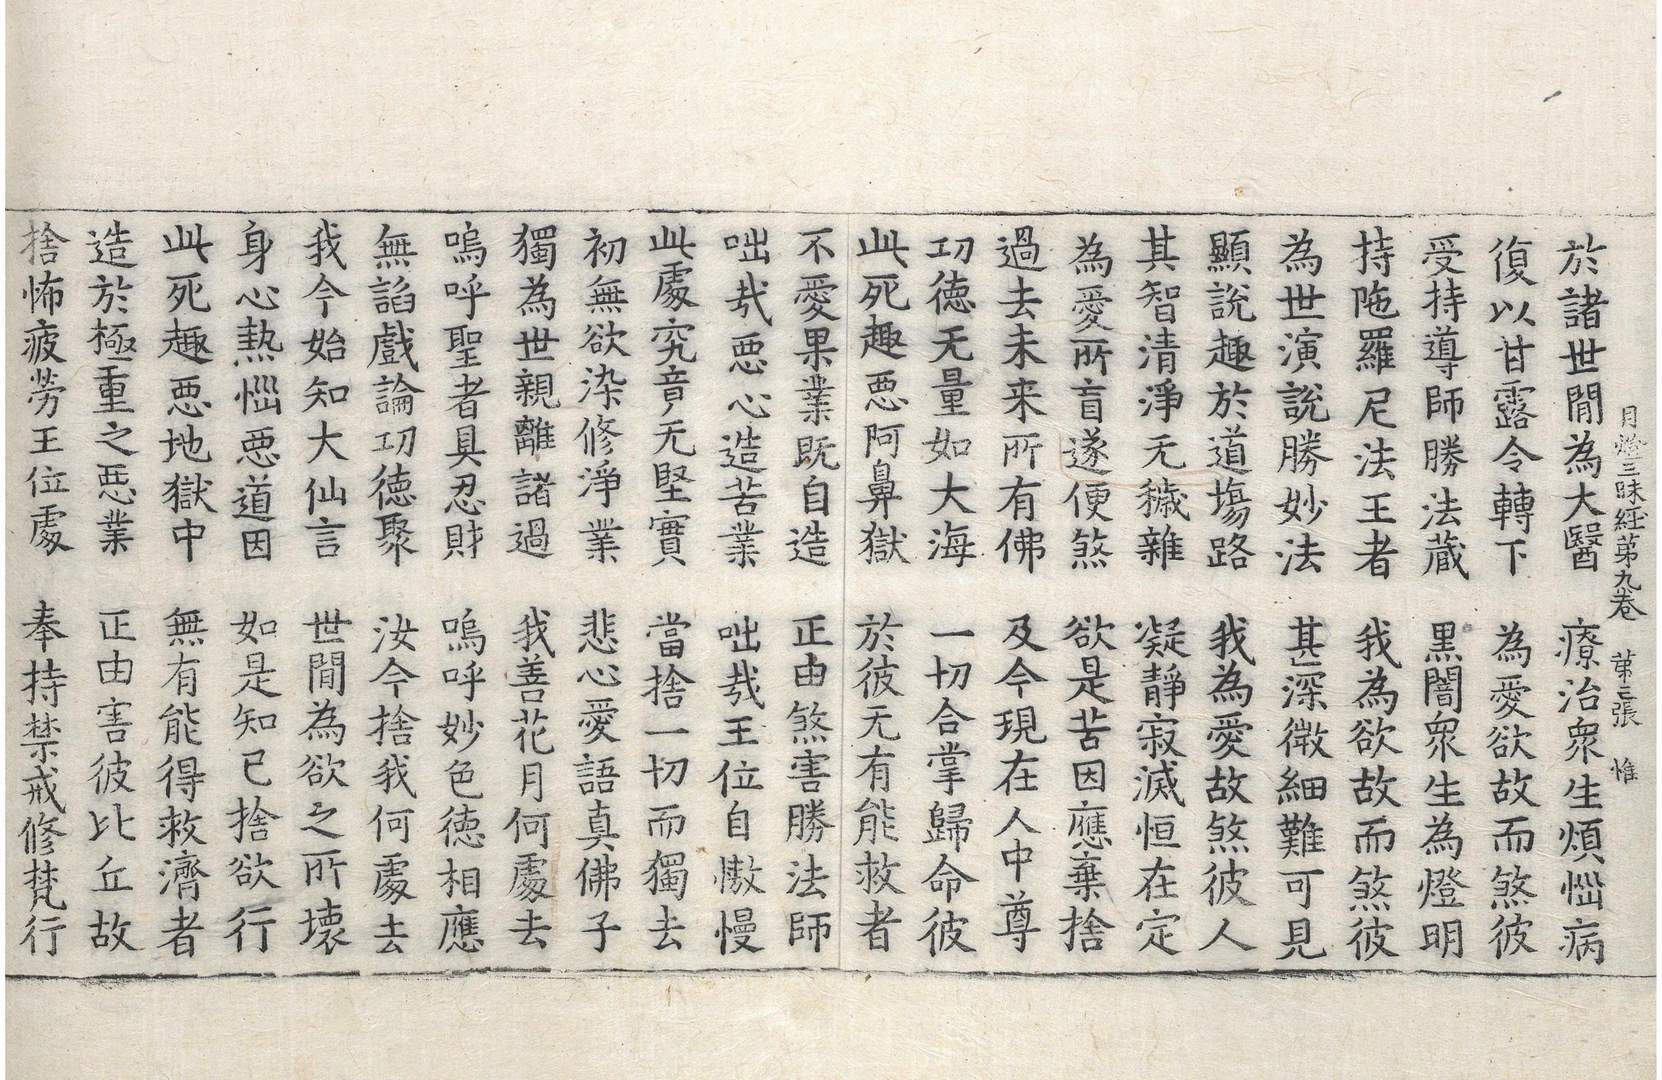 月燈三昧經第九卷　第三張　惟
於諸世間為大醫　療治衆生煩惱病
復以甘露令轉下　為愛欲故而煞彼
受持導師勝法藏　黑闇衆生為燈明
持陁羅尼法王者　我為欲故而煞彼
為世演說勝妙法　甚深微細難可見
顯說趣於道場路　我為愛故煞彼人
其智清淨无穢雜　凝靜寂滅恒在定
為愛所盲遂便煞　欲是苦因應棄捨
過去未来所有佛　及今現在人中尊
功德无量如大海　一切合掌歸命彼
此死趣惡阿鼻獄　於彼无有能救者
不愛果業既自造　正由煞害勝法師
咄哉惡心造苦業　咄哉王位自憿慢
此處究竟无堅實　當捨一切而獨去
初無欲染修淨業　悲心愛語真佛子
獨為世親離諸過　我善花月何處去
嗚呼聖者具忍財　嗚呼妙色德相應
無諂戲論功德聚　汝今捨我何處去
我今始知大仙言　世間為欲之所壞
身心熱惱惡道因　如是知已捨欲行
此死趣惡地獄中　無有能得救濟者
造於極重之惡業　正由害彼比丘故
捨怖疲勞王位處　奉持禁戒修梵行